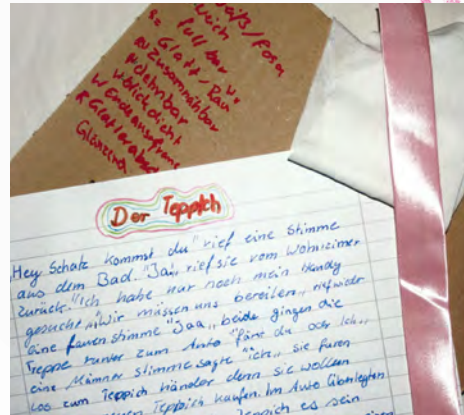 weiß/Rosa
weich
füllbar
Glatt/Rau
Zusammnähbar
dehnbar
dick dicht
Ende ausfranst
Glänzend
Der Teppich
„Hey Schatz kommst du" rief eine Stimme
aus dem Bad. "Jaa„ rief sie vom Wohnzimer
zurück. "Ich habe nur noch mein Handy
gesucht„ "Wir müssen uns bereilen„ rief wieder
eine frauen stimme "Jaa„ beide gingen die
Treppe runter zum Auto "färst du oder Ich„
eine Männer stimme sagte "ich„ sie furen
los zum Teppich händler denn sie wollen
Teppich kaufen. Im Auto überlegten
Teppich es sein